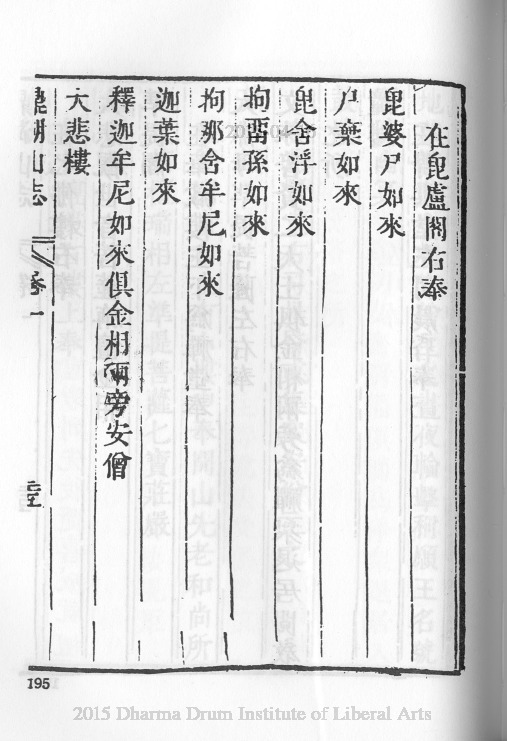 在毘盧閣右奉
毘婆尸如來
尸棄如來
毘舍浮如來
拘畱孫如來
拘那舍牟尼如來
迦葉如來
釋迦牟尼如來俱金相兩旁安僧
大悲樓
鼎湖山志 卷一
195
2015 Dharma Drum Institute of Liberal Arts